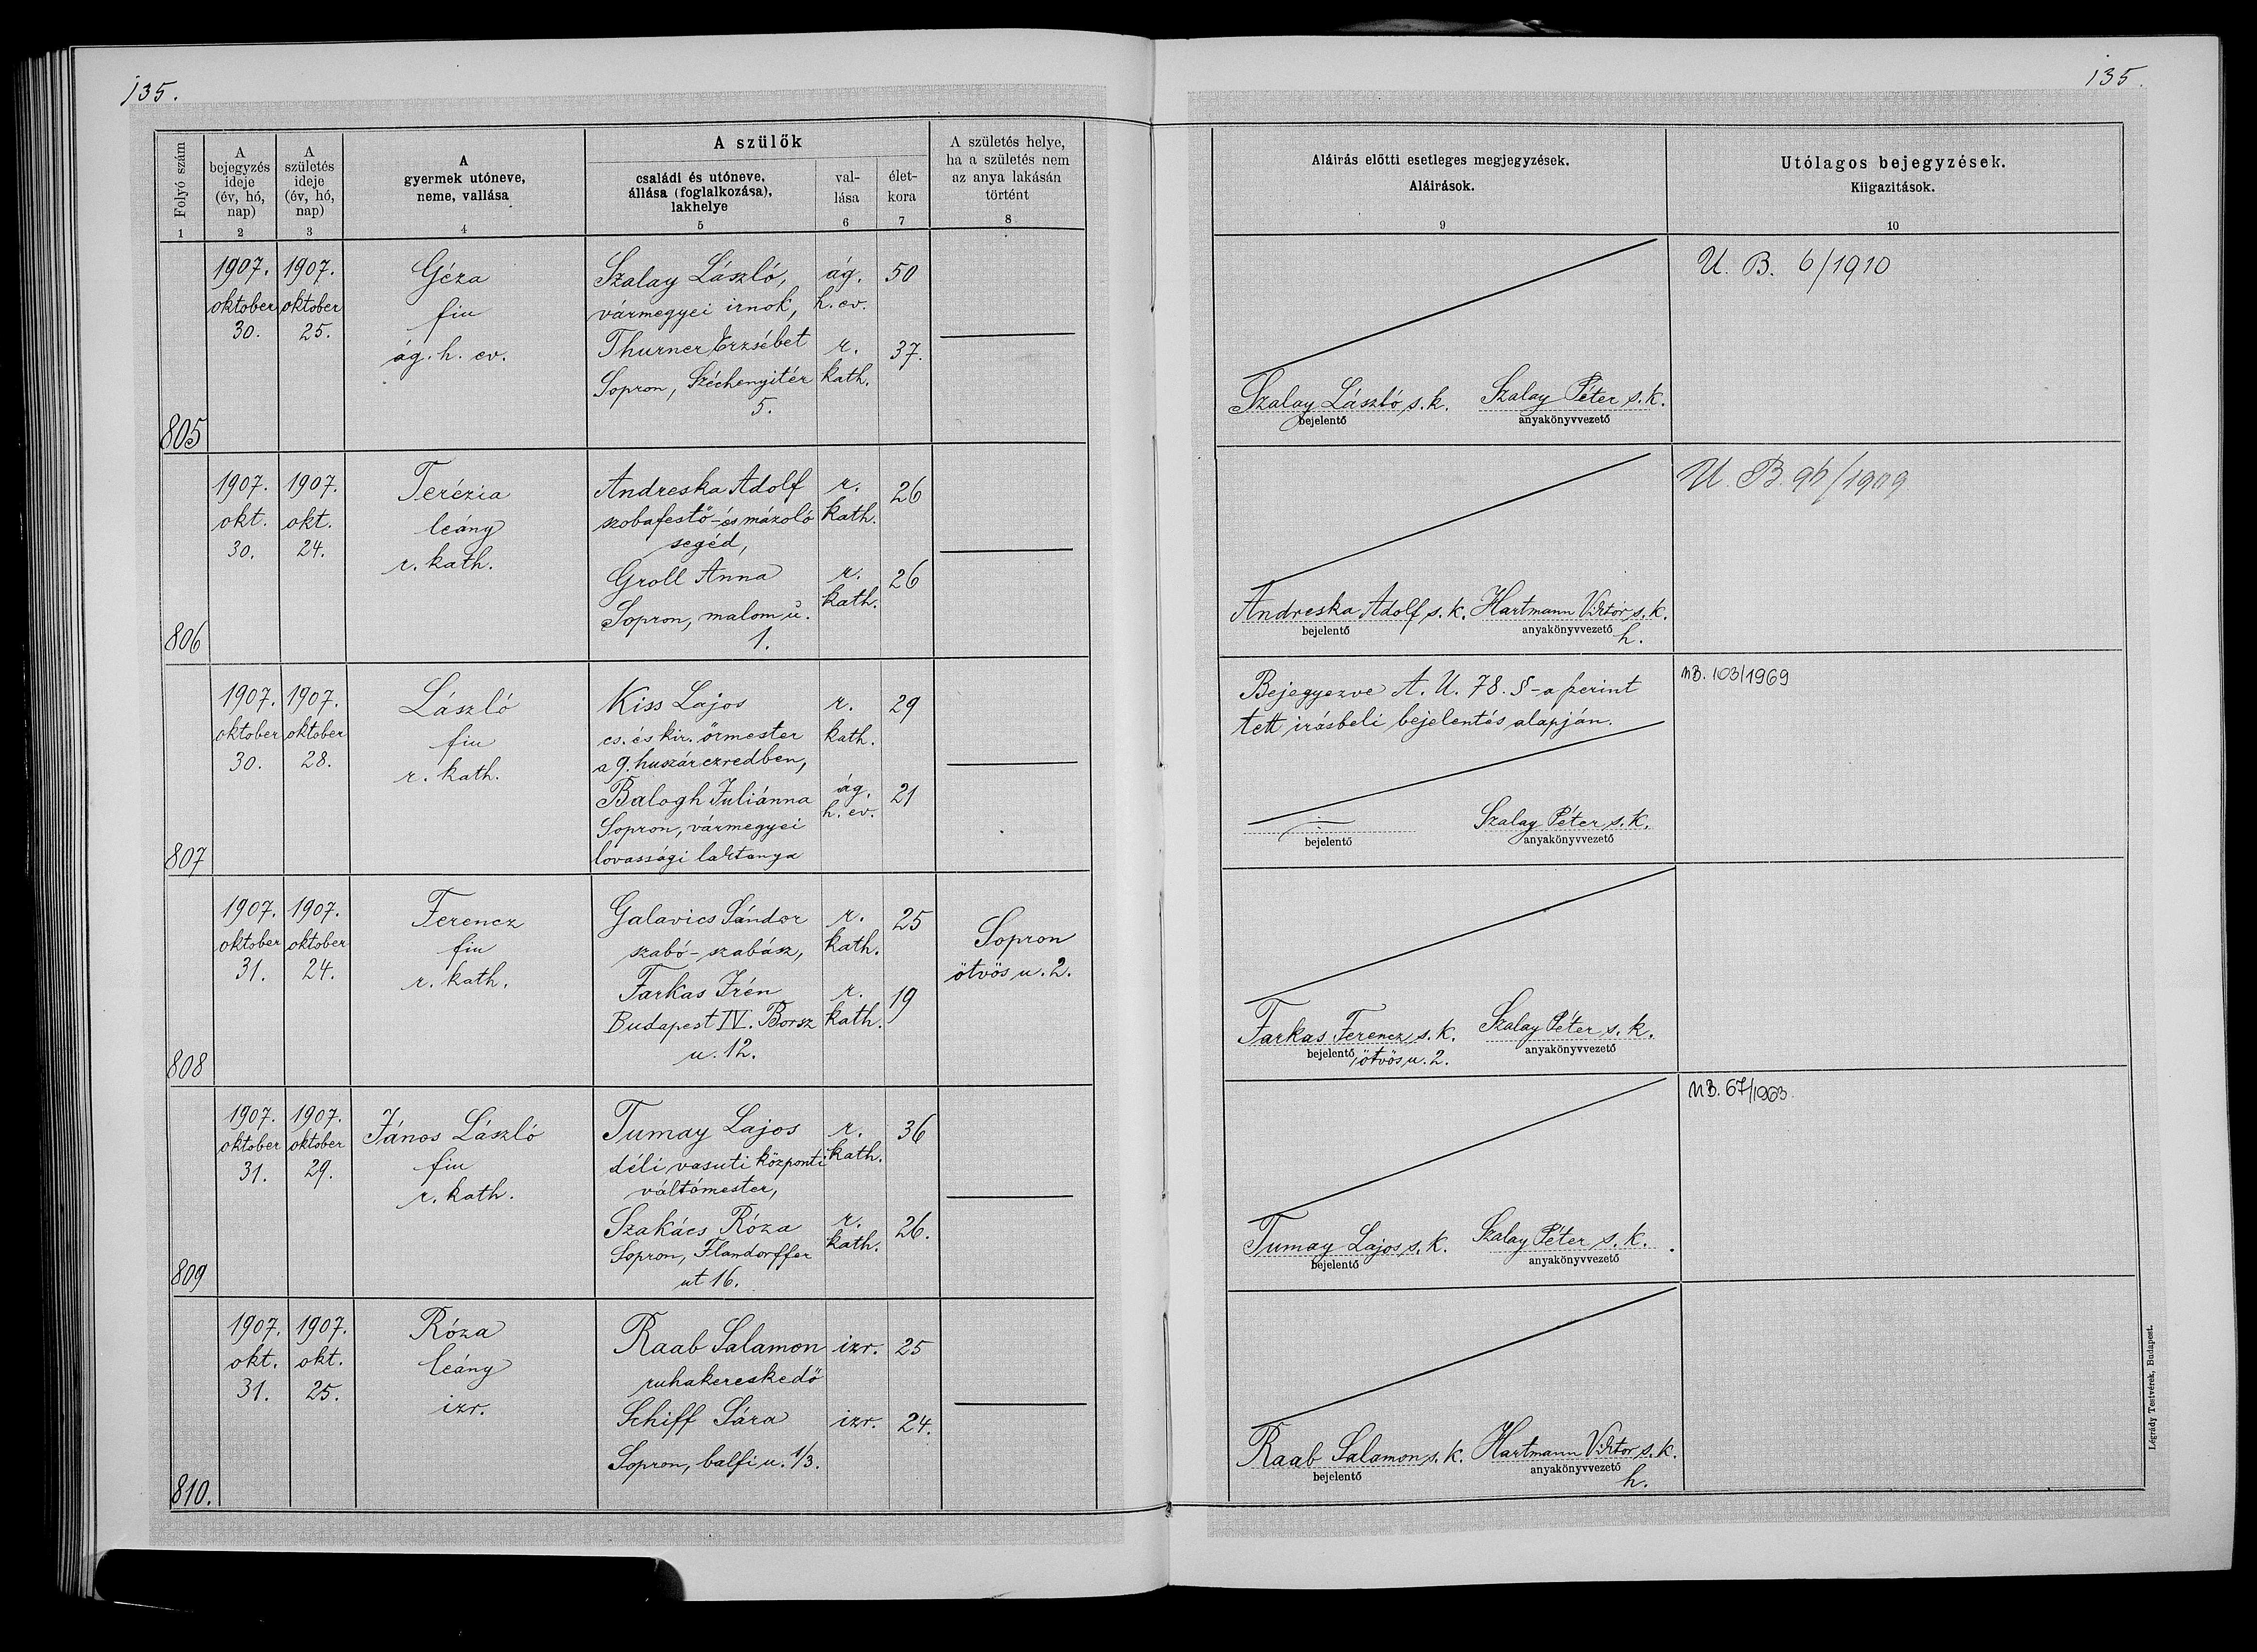 135.
135.
Folyó szám
A bejegyzés ideje (év, hó, nap)
A születés ideje (év, hó, nap)
A gyermek utóneve, neme, vallása
A szülők
családi és utóneve, állása (foglalkozása), lakhelye
val-lása
élet-kora
A születés helye, ha a születés nem az anya lakásán történt
Aláírás előtti esetleges megjegyzések.
Aláírások.
Utólagos bejegyzések.
Kiigazitások.
1 2 3 4 5 6 7 8 9 10
805
1907. oktober 30.
1907. oktober 25.
Géza
fiu
ág. h. ev.
Szalay László,
vármegyei irnok,
Thurner Erzsébet
Sopron, Széchenyitér
5.
ág. h. ev.
r. kath.
50
37.
Szalay László s. k.
bejelentő
Szalay Péter s. k.
anyakönyvvezető
U. B. 6/1910
806
1907. okt. 30.
1907. okt. 24.
Terézia
leány
r. kath.
Andreska Adolf
szobafestő- és mázoló
segéd,
Groll Anna
Sopron, malom u.
1.
r. kath.
r. kath.
26
26
Andreska Adolf s. k.
bejelentő
Hartmann Viktor s. k.
anyakönyvvezető
h.
U. B. /1909
807
1907. oktober 30.
1907. oktober 28.
László
fiu
r. kath.
Kiss Lajos
cs. és kir. őrmester
a 9. huszárezredben,
Balogh Juliánna
Sopron, vármegyei
lovassági laktanya
r. kath.
ág. h. ev.
29
21
Bejegyezve A. U. 78. §-a szerint
tett irásbeli bejelentés alapján.
bejelentő
Szalay Péter s. k.
anyakönyvvezető
UB. 103/1969
808
1907. oktober 31.
1907. oktober 24.
Ferencz
fiu
r. kath.
Galavics Sándor
szabó-szabász,
Farkas Irén
Budapest IV. Borsz
u. 12.
r. kath.
r. kath.
25
19
Sopron
ötvös u. 2.
Farkas Ferencz s. k.
bejelentő, ötvös u. 2.
Szalay Péter s. k.
anyakönyvvezető
809
1907. oktober 31.
1907. oktober 29.
János László
fiu
r. kath.
Tumay Lajos
déli vasuti központi
váltómester,
Szakács Róza
Sopron, Flandorffer
ut 16.
r. kath.
r. kath.
36
26.
Tumay Lajos s. k.
bejelentő
Szalay Péter s. k.
anyakönyvvezető
UB. 67/1963.
810.
1907. okt. 31.
1907. okt. 25.
Róza
leány
izr.
Raab Salamon
ruhakereskedő
Schiff Sára
Sopron, balfi u. 1/3.
izr.
izr.
25
24.
Raab Salamon s. k.
bejelentő
Hartmann Viktor s. k.
anyakönyvvezető
h.
Légrády Testvérek, Budapest.